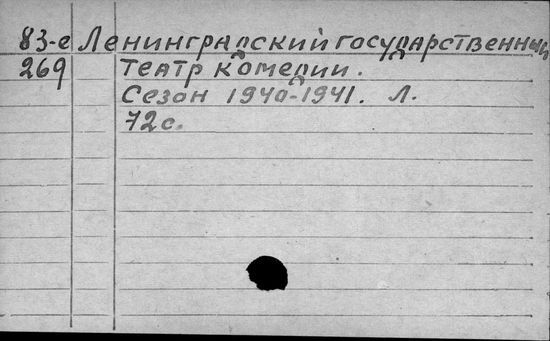 83-е Ленинградский государственный
269 театр комедии.
Сезон 1940-1941. Л.
72с.